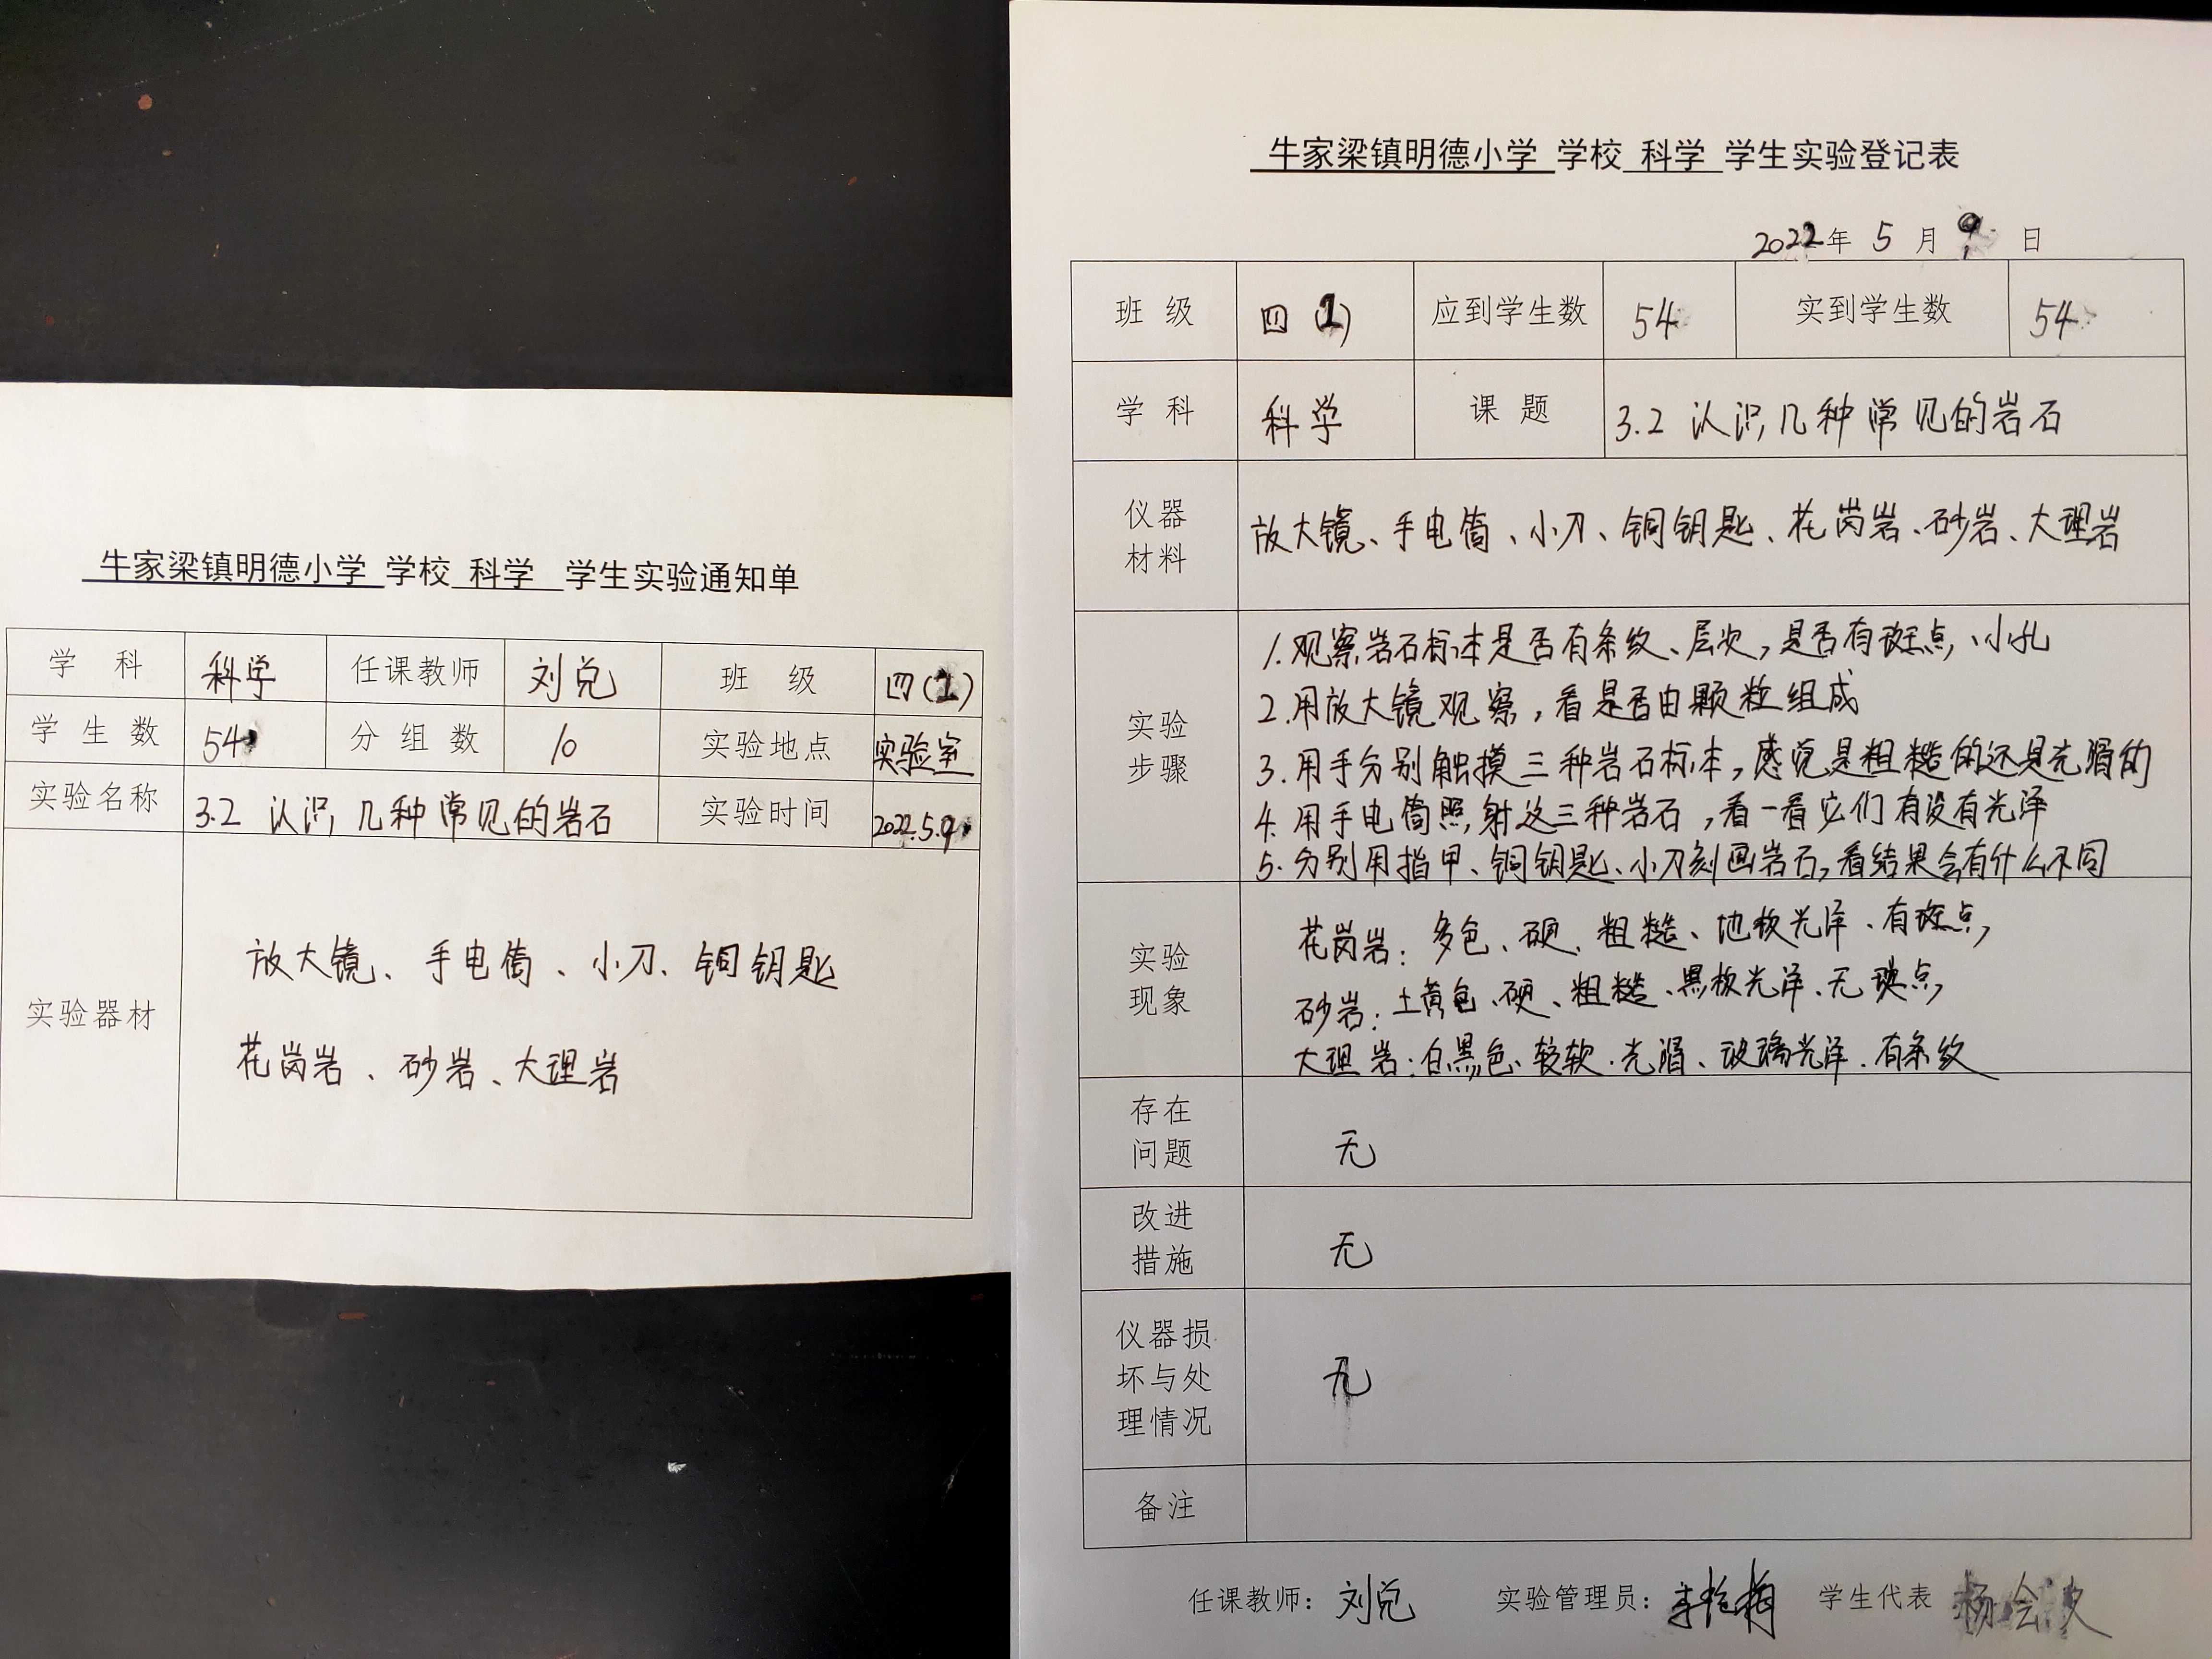 牛家梁镇明德小学 学校 科学 学生实验通知单
学 科 科学 任课教师 刘兑 班 级 四(1)
学 生 数 54 分 组 数 10 实验地点 实验室
实验名称 3.2 认识几种常见的岩石 实验时间 2022.5.9
实验器材
放大镜、手电筒、小刀、铜钥匙
花岗岩、砂岩、大理岩
牛家梁镇明德小学 学校 科学 学生实验登记表
2022年 5 月 9 日
班 级 四(1) 应到学生数 54 实到学生数 54
学 科 科学 课 题 3.2 认识几种常见的岩石
仪器
材料
放大镜、手电筒、小刀、铜钥匙、花岗岩、砂岩、大理岩
实验
步骤
1.观察岩石标本是否有条纹、层次,是否有斑点,小孔
2.用放大镜观察,看是否由颗粒组成
3.用手分别触摸三种岩石标本,感觉是粗糙的还是光滑的
4.用手电筒照射这三种岩石,看一看它们有没有光泽
5.分别用指甲、铜钥匙、小刀刻画岩石,看结果会有什么不同
实验
现象
花岗岩:多色、硬、粗糙、地板光泽、有斑点,
砂岩:土黄色、硬、粗糙、黑板光泽、无斑点,
大理岩:白黑色、较软、光滑、玻璃光泽、有条纹
存在
问题
无
改进
措施
无
仪器损
坏与处
理情况
无
备注
任课教师: 刘兑 实验管理员: 学生代表